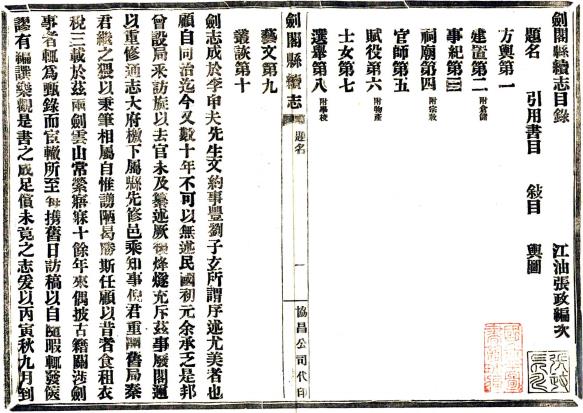 劍閣縣續志目錄
江油張政編次
題名 引用書目 敍目 輿圖
方輿第一
建置第二 附倉儲
事紀第三
祠廟第四 附宗敎
官師第五
賦役第六 附物產
士女第七
選舉第八 附學校
藝文第九
叢談第十
劍閣縣續志 題名 一 協昌公司代印
劍志成於李申夫先生文約事豐劉子玄所謂序述尤美者也
顧自同治迄今又數十年不可以無述民國初元余承乏是邦
曾設局采訪旋以去官未及纂述厥後烽燧充斥茲事廢閣邇
以重修通志大府檄下屬縣先修邑乘知事倪君重開舊局秦
君繼之猥以秉筆相屬自惟譾陋曷勝斯任顧以昔者食租衣
稅三載於茲兩劍雲山常縈寤寐十餘年來偶披古籍關涉劍
事者輒爲甄錄而宦轍所至每攜舊日訪稿以自隨暇輒發篋
謬有編譔樂觀是書之成足償未竟之志爰以丙寅秋九月到